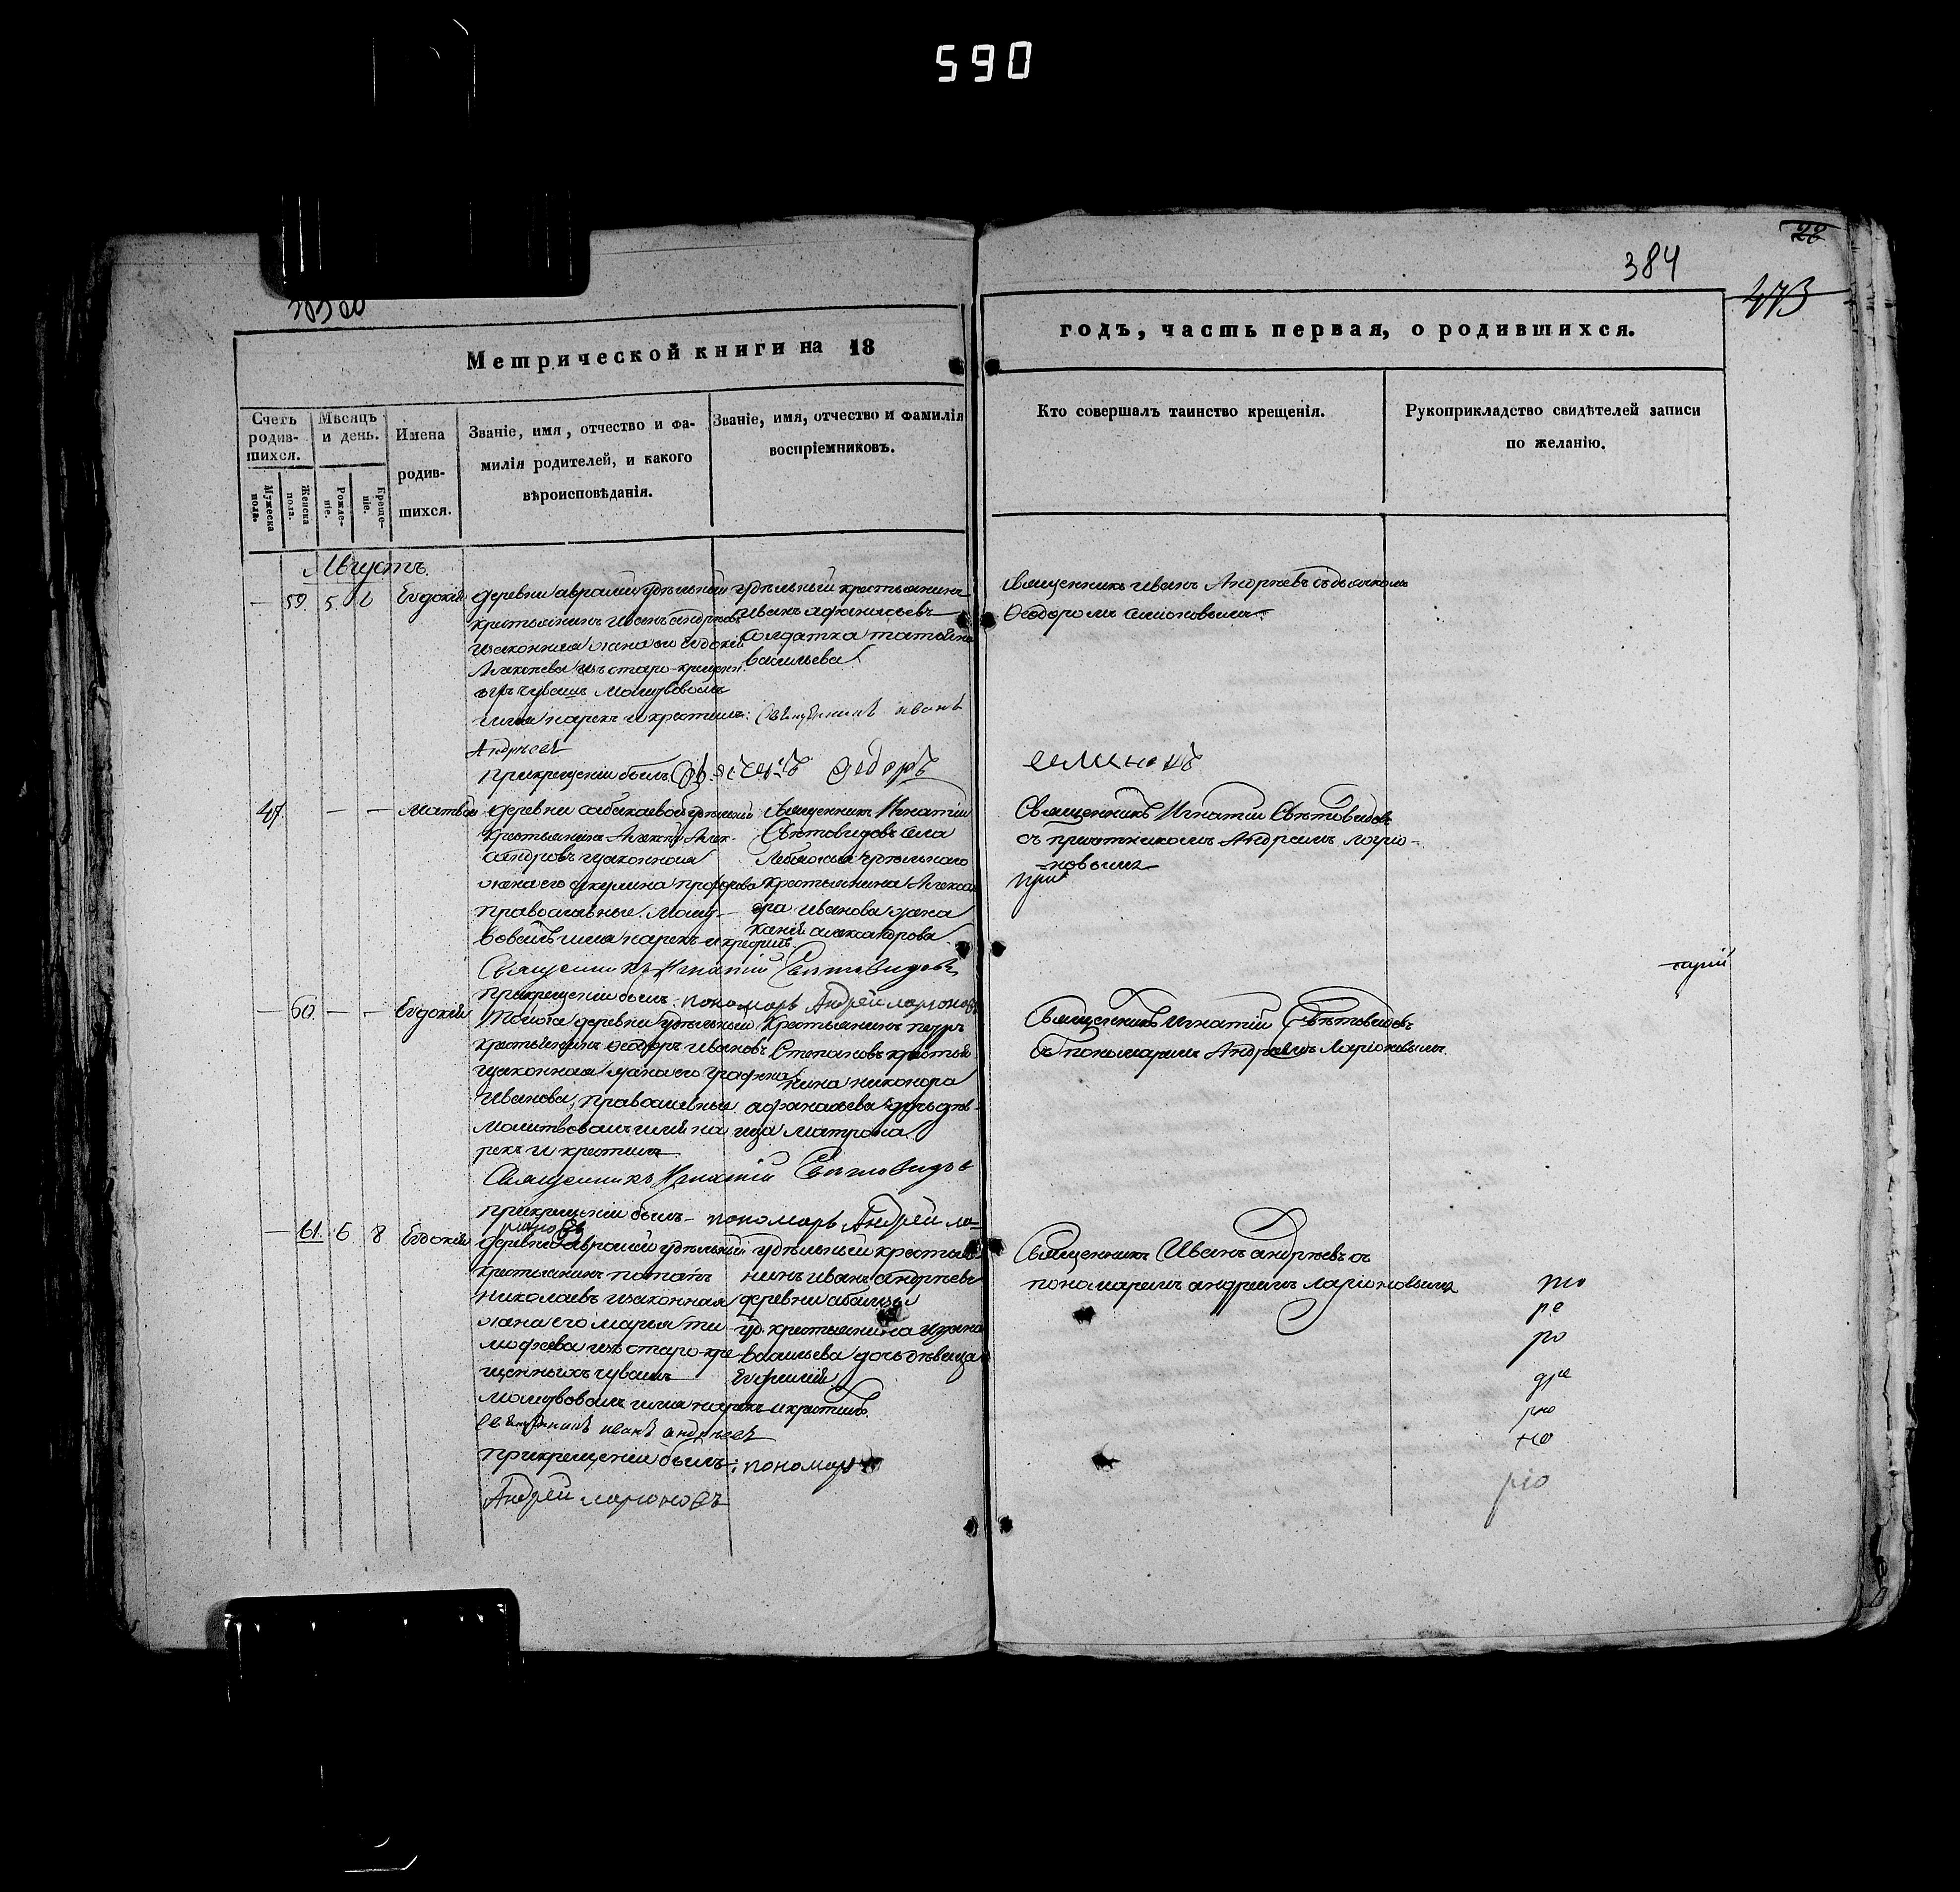 590
22
384
473
Метрической книги на 18
годъ, часть первая, о родившихся.
Счетъ родив-шихся.
Мужеска пола.
Женска пола.
Мѣсяцъ и день.
Рожде-ніе.
Креще-ніе.
Имена родив-шихся.
Званіе, имя, отчество и фа-
милія родителей, и какого
вѣроисповѣданія.
Званіе, имя, отчество и фамилія
воспріемниковъ.
Кто совершалъ таинство крещенія.
Рукоприкладство свидѣтелей записи
по желанію.
Августъ.
— 59. 5. 6 Евдокія
деревни аврали удѣльный
крестьянинъ Иванъ андреевъ
изаконная жена его Евдокія
Алексѣева изъ старо-крещен
чувашъ Молитвовалъ
имя нарекъ и крестилъ: Священникъ иванъ
Андреевъ
прикрещеніи былъ дьячекъ Федоръ
семеновъ
удѣльный крестьянинъ
Иванъ афанасьевъ
солдатка татьяна
васильева.
Священникъ Иванъ Андреевъ съ дьячкомъ
Феодоромъ симоновымъ.
47. — — Матвей
деревни удѣльный
крестьянинъ Алексѣй Алек-
сандровъ изаконная
жена его акулина прохорова
православные. Молит-
вовалъ имя нарекъ и крестилъ
Священникъ Игнатій Свѣтовидовъ
прикрещеніи былъ пономарь Андрей ларионовъ
Священникъ Игнатій
Свѣтовидовъ села
удѣльнаго
крестьянина Алексан
дра Иванова жена
александрова
Священникъ Игнатій Свѣтовидовъ
съ причетникомъ Андреемъ ларіо-
новымъ
при
— 60. — — Евдокія
Тойже деревни удѣльный
крестьянинъ Феодоръ ивановъ
изаконная жена его
Иванова, православные
молитвовалъ имя на
рекъ и крестилъ
Священникъ Игнатій Свѣтовидовъ
прикрещеніи былъ — пономарь Андрей ла-
ріоновъ
Крестьянинъ петръ
Степановъ крестья
нина никонора
афанасьева дочь дѣв-
ица матрона
Священникъ Игнатій Свѣтовидовъ
съ пономаремъ Андреемъ Ларіоновымъ.
— 61. 6 8 Евдокія
деревни аврали удѣльный
крестьянинъ потапъ
николаевъ изаконная
жена его марья ти
мофеева изъ старо-кре
щенныхъ чувашъ
молитвовалъ имя нарекъ и крестилъ.
Священникъ иванъ андреевъ
прикрещеніи былъ: пономарь
Андрей ларионовъ
удѣльный крестья
нинъ иванъ андреевъ
деревни
уд. крестьянина
васильева дочь дѣвица
Священникъ Иванъ андреевъ съ
пономаремъ андреемъ ларіоновымъ